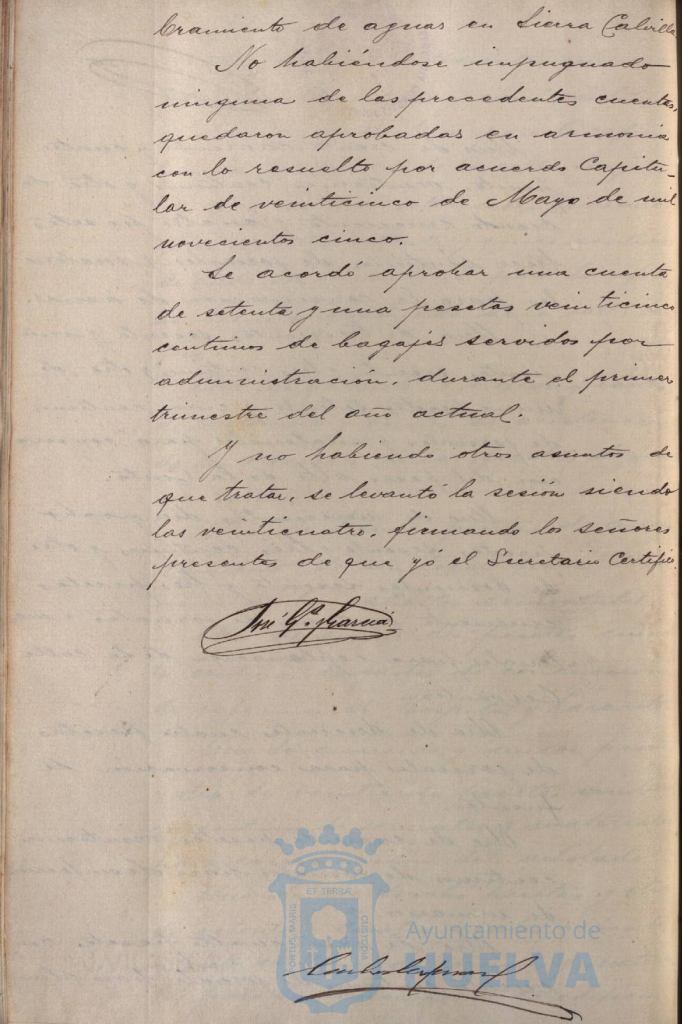 bramiento de aguas en Sierra Calvilla
No habiéndose impugnado
ninguna de las precedentes cuentas,
quedaron aprobadas en armonia
con lo resuelto por acuerdo Capitu-
lar de veinticinco de Mayo de mil
novecientos cinco.
Se acordó aprobar una cuenta
de setenta y una pesetas veinticinco
centimos de bagajes servidos por
administración, durante el primer
trimestre del año actual.
Y no habiendo otros asuntos de
que tratar, se levantó la sesión siendo
las veinticuatro, firmando los señores
presentes de que yó el Secretario Certifico.
José Gª. Garcia
ET TERRÆ
PORTUS MARIS
CUSTODIA
Ayuntamiento de
HUELVA